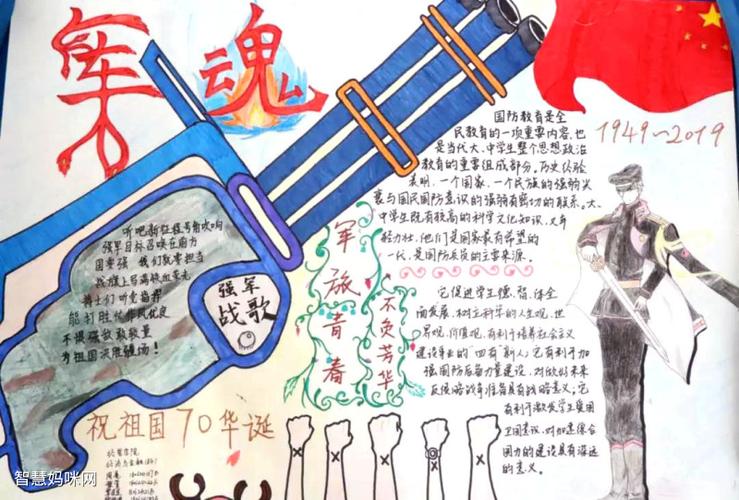 军魂
国防教育是全
民教育的一项重要内容,也
是当代大、中学生整个思想政治
教育的重要组成部分。历史经验
表明,一个国家、一个民族的强弱兴
衰与国民国防意识的强弱有密切的联系。大、
中学生既有较高的科学文化知识,又年
轻力壮,他们是国家最有希望的
一代,是国防后备的主要来源。
它促进学生德、智、体全
面发展,树立科学的人生观、世
界观、价值观,有利于培养社会主义
建设事业的“四有”新人;它有利于加
强国防后备力量建设,对做好未来
反侵略战争准备具有战略意义;它
有利于激发学生爱国
卫国意识,对加速综合
国力的建设具有深远
的意义。
1949~2019
听吧新征程号角吹响
强军目标召唤在前方
国要强 我们就要担当
战旗上写满铁血荣光
将士们听党指挥
能打胜仗作风优良
不惧强敌敢较量
为祖国决胜疆场!
强军
战歌
军旅青春
不负芳华
祝祖国70华诞
智慧妈咪网